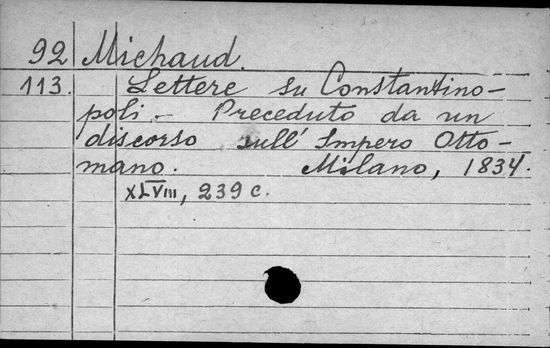 92 Michaud.
113. Lettere su Constantino-
poli.- Preceduto da un
discorso sull' Impero Otto-
mano. Milano, 1834.
XLVIII, 239 c.